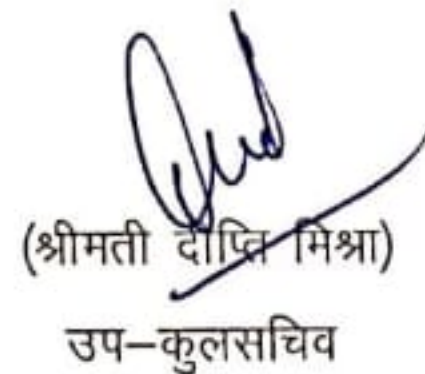 (श्रीमती दीप्ति मिश्रा)
उप–कुलसचिव